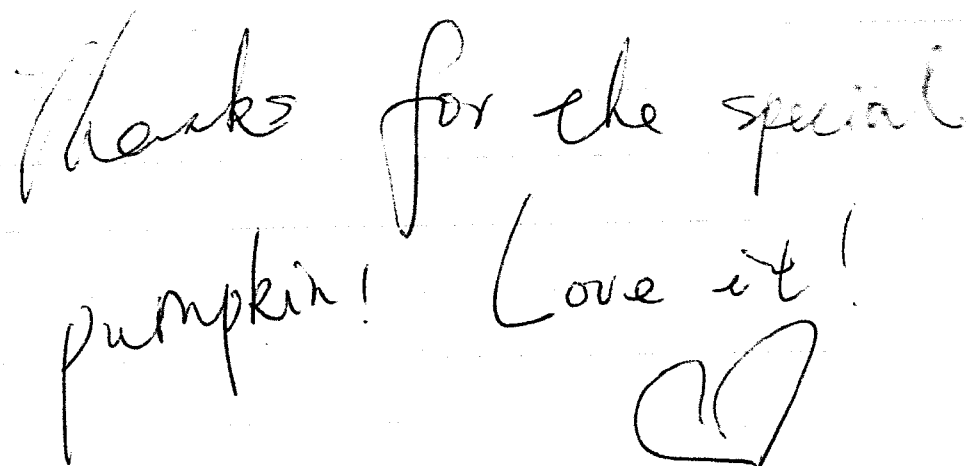 Thanks for the special
pumpkin! Love it!